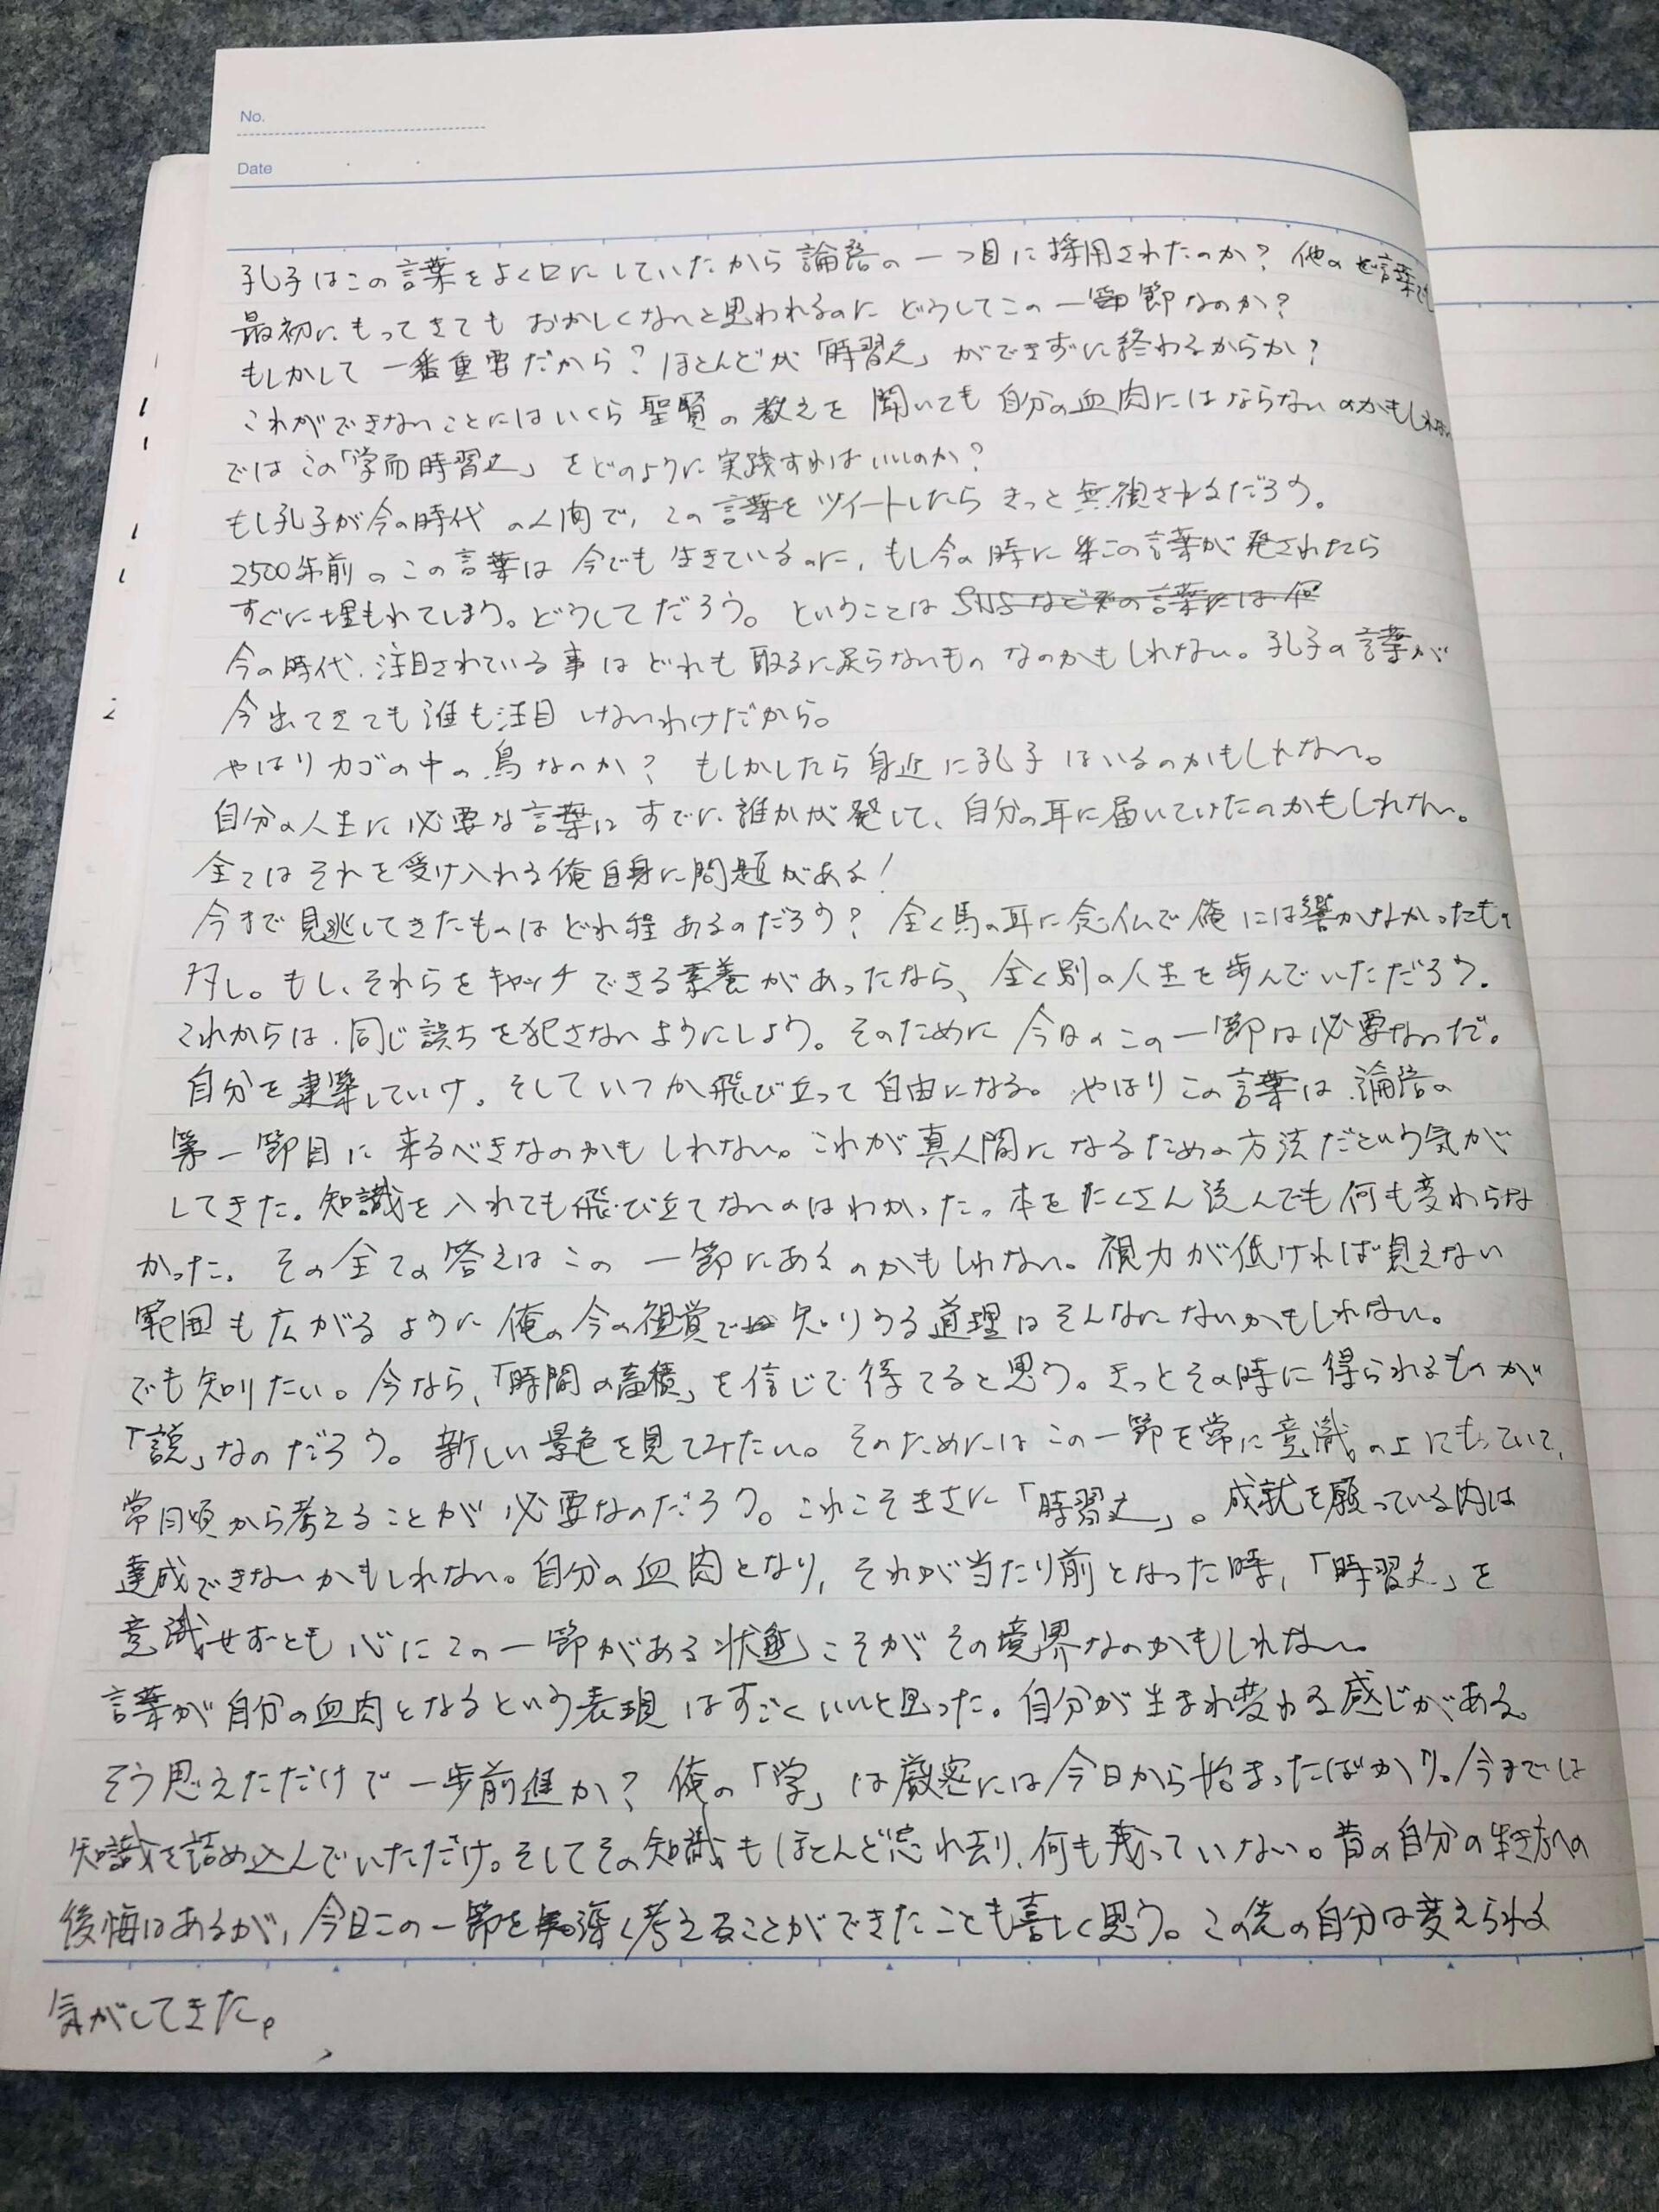 No.
Date
孔子はこの言葉をよく口にしていたから論語の一つ目に採用されたのか？他の言葉でも
最初にもってきてもおかしくないと思われるのにどうしてこの一節なのか？
もしかして一番重要だから？ほとんどが「時習之」ができずに終わるからか？
これができないことにはいくら聖賢の教えを聞いても自分の血肉にはならないのかもしれない
ではこの「学而時習之」をどのように実践すればいいのか？
もし孔子が今の時代の人間で、この言葉をツイートしたらきっと無視されるだろう。
2500年前のこの言葉は今でも生きているのに、もし今の時にこの言葉が発されたら
すぐに埋もれてしまう。どうしてだろう。ということは SNSなどの言葉には何
今の時代、注目されている事はどれも取るに足らないものなのかもしれない。孔子の言葉が
今出てきても誰も注目しないわけだから。
やはりカゴの中の鳥なのか？もしかしたら身近に孔子はいるのかもしれない。
自分の人生に必要な言葉はすでに誰かが発して、自分の耳に届いていたのかもしれない。
全てはそれを受け入れる俺自身に問題がある！
今まで見逃してきたものはどれ程あるのだろう？全く馬の耳に念仏で俺には響かなかったもの
多し。もし、それらをキャッチできる素養があったなら、全く別の人生を歩んでいただろう。
これからは、同じ誤ちを犯さないようにしよう。そのために今日のこの一節は必要なのだ。
自分を建築していけ。そしていつか飛び立って自由になる。やはりこの言葉は論語の
第一節目に来るべきなのかもしれない。これが真人間になるための方法だという気が
してきた。知識を入れても飛び立てないのはわかった。本をたくさん読んでも何も変わらな
かった。その全ての答えはこの一節にあるのかもしれない。視力が低ければ見えない
範囲も広がるように俺の今の視覚で知りうる道理はそんなにないかもしれない。
でも知りたい。今なら、「時間の蓄積」を信じて待てると思う。きっとその時に得られるものが
「説」なのだろう。新しい景色を見てみたい。そのためにはこの一節を常に意識の上にもっていて、
常日頃から考えることが必要なのだろう。これこそまさに「時習之」。成就を願っている内は
達成できないかもしれない。自分の血肉となり、それが当たり前となった時、「時習之」を
意識せずとも心にこの一節がある状態こそがその境界なのかもしれない。
言葉が自分の血肉となるという表現はすごくいいと思った。自分が生まれ変わる感じがある。
そう思えただけで一歩前進か？俺の「学」は厳密には今日から始まったばかり。今までは
知識を詰め込んでいただけ。そしてその知識もほとんど忘れ去り、何も残っていない。昔の自分の生き方への
後悔はあるが、今日この一節を深く考えることができたことも喜しく思う。この先の自分は変えられる
気がしてきた。